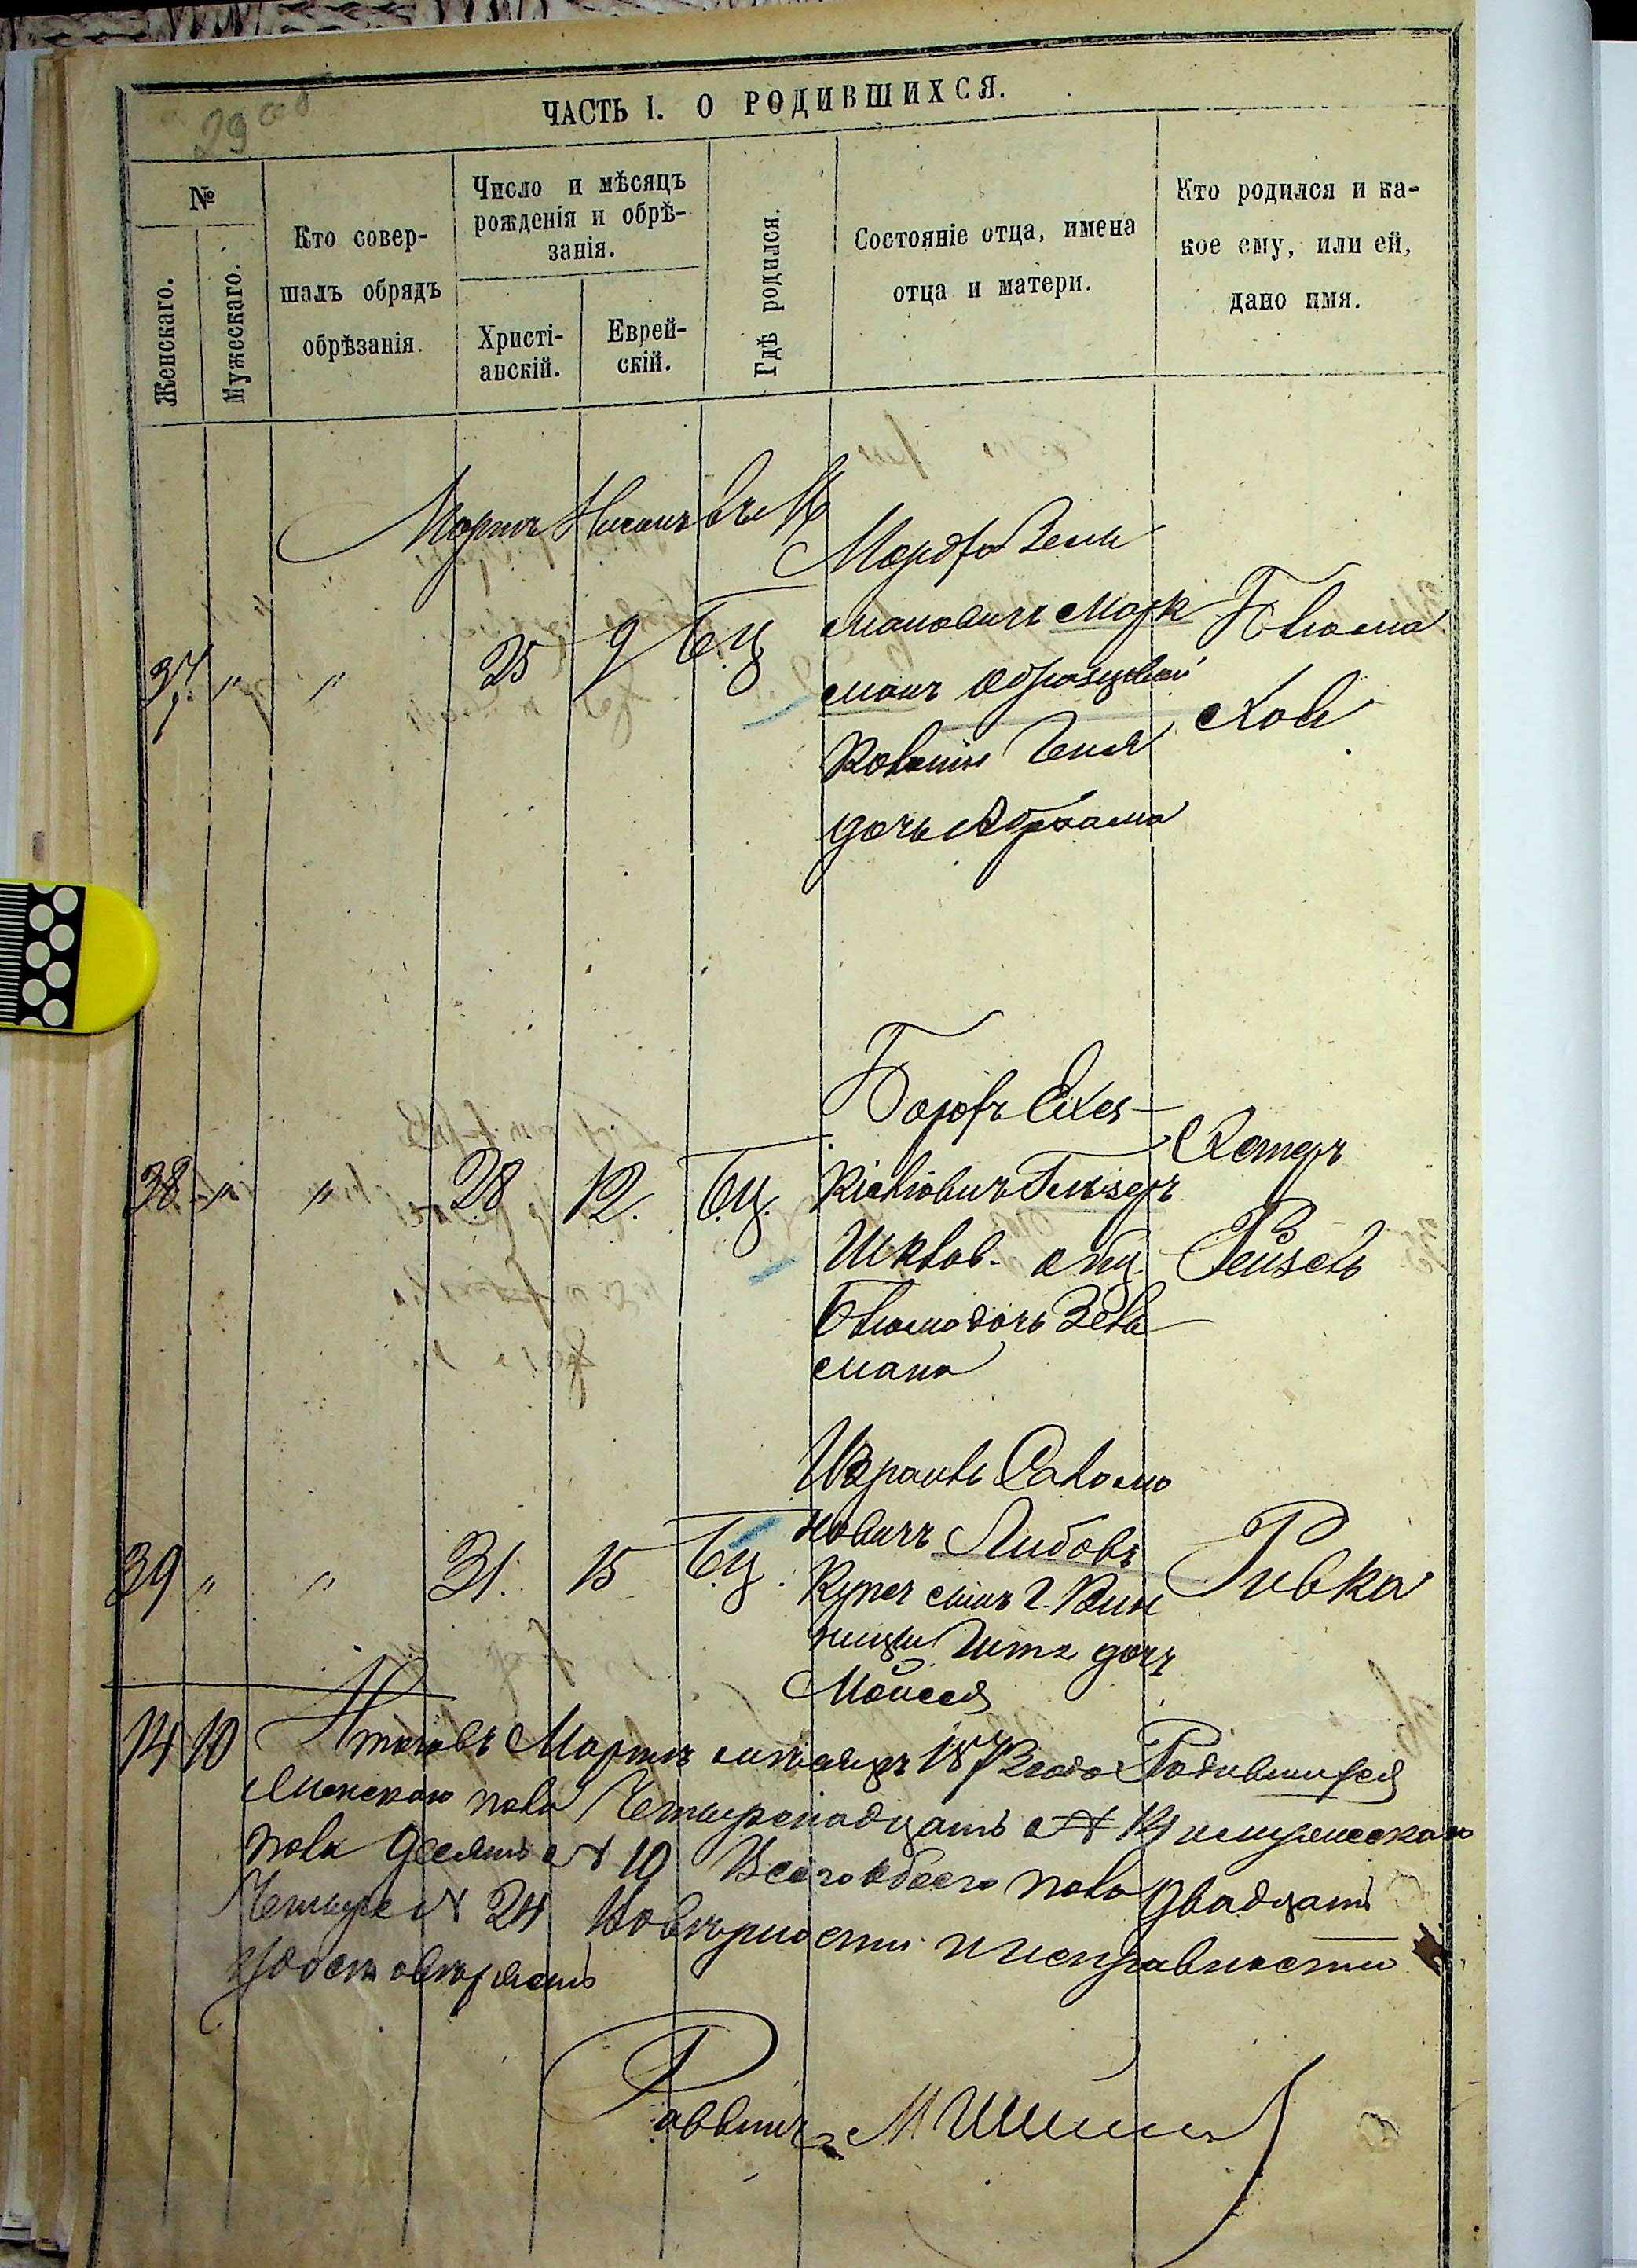 29 об
ЧАСТЬ I. О РОДИВШИХСЯ.
№
Женскаго.
Мужескаго.
Кто совер-
шалъ обрядъ
обрѣзанія.
Число и мѣсяцъ
рожденія и обрѣ-
занія.
Христі-
анскій.
Еврей-
скій.
Гдѣ родился.
Состояніе отца, имена
отца и матери.
Кто родился и ка-
кое ему, или ей,
дано имя.
Мартъ Нисанъ
37 " " 25 9 Б.Ц.
Мордко Зель
мановичъ Марк
манъ
Геня
дочь Абрама
Блюма
Хая
38 " " 28 12. Б.Ц.
Борохъ Ехез-
кіеліовичъ
Шклов. общ.
Блюма дочь Зель
мана
Эстеръ
Рейзель
39 " " 31. 15 Б.Ц.
Израиль Саломо
новичъ Либовъ
Купеч сынъ г. Вин
ницы Гитя дочь
Моисея
Ривка
14 10 Итого въ Мартѣ мѣсяцѣ 1873 года Родившихся
Женскаго пола Четырнадцать № 14 и мужескаго
пола десять № 10 Всего обоего пола двадцать
Четыре № 24 Въ вѣрности и исправности
удостовѣряемъ
Раввинъ М